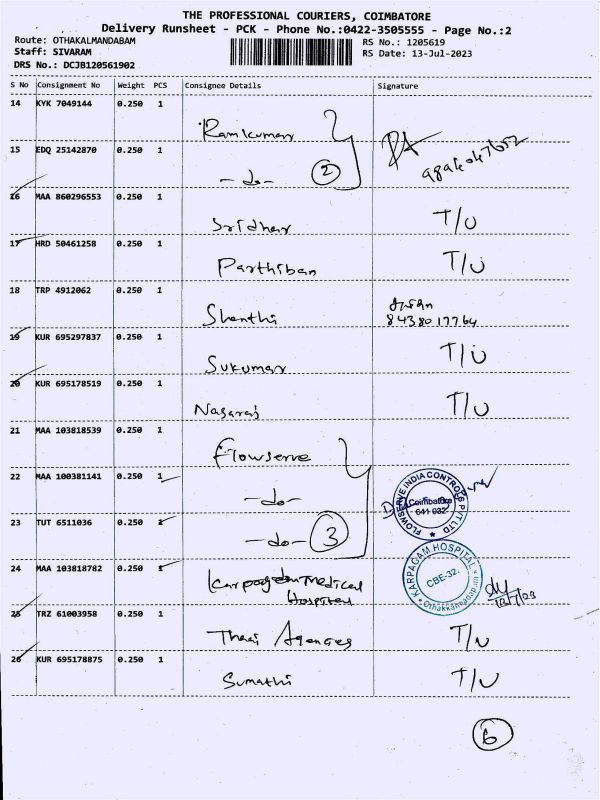 THE PROFESSIONAL COURIERS, COIMBATORE
Delivery Runsheet - PCK - Phone No.:0422-3505555 - Page No.:2
Route: OTHAKALMANDABAM
RS No.: 1205619
Staff: SIVARAM
RS Date: 13-Jul-2023
DRS No.: DCJB120561902
S No Consignment No Weight PCS Consignee Details Signature
14 KYK 7049144 0.250 1
Ramkumar
15 EDQ 25142870 0.250 1
-do- 2
16 MAA 860296553 0.250 1
Sridhar T/U
17 HRD 50461258 0.250 1
Parthiban T/U
18 TRP 4912062 0.250 1
Shanthi
8438017764
19 KUR 695297837 0.250 1
Sukumar T/U
20 KUR 695178519 0.250 1
Nagaraj T/U
21 MAA 103818539 0.250 1
Flowserve
22 MAA 100381141 0.250 1
-do-
FLOWSERVE INDIA CONTROLS PVT LTD
Coimbatore
641 032
23 TUT 6511036 0.250 1
-do- 3
24 MAA 103818782 0.250 1
Karpagam Medical
Hospital
KARPAGAM HOSPITAL
CBE-32.
25 TRZ 61003958 0.250 1
Thai Agencies T/U
26 KUR 695178875 0.250 1
Sumathi T/U
6